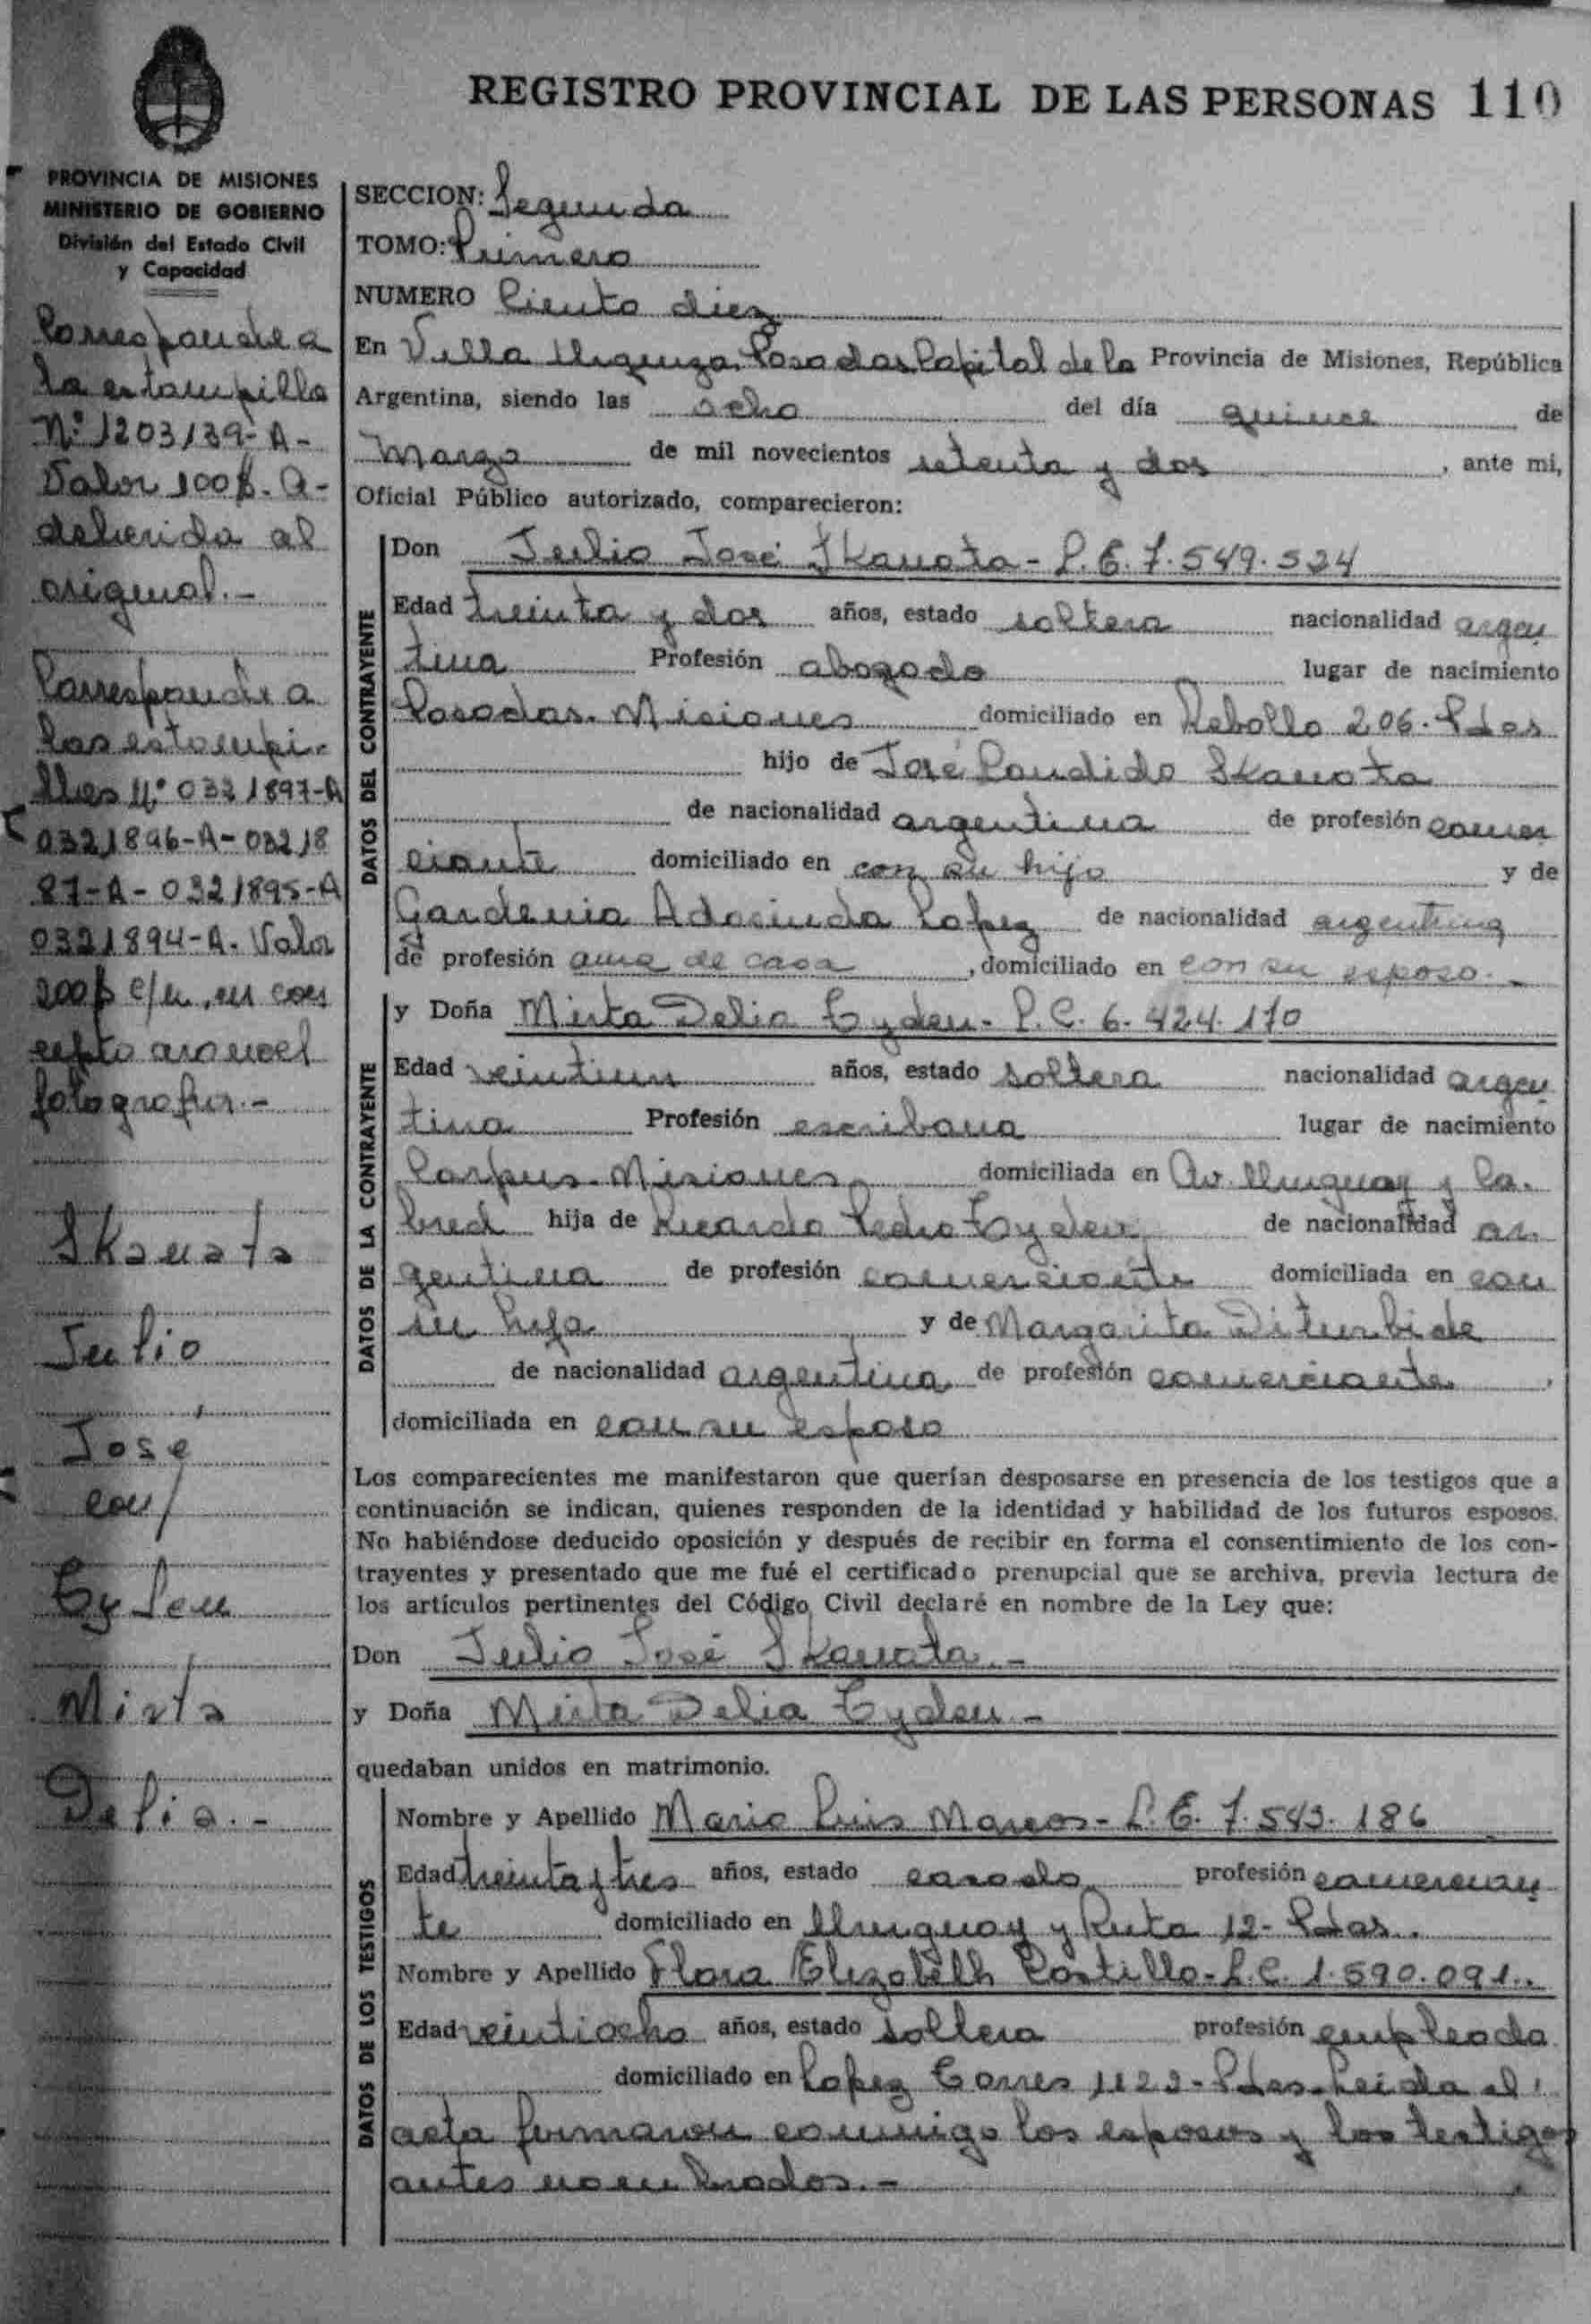 REGISTRO PROVINCIAL DE LAS PERSONAS 110
PROVINCIA DE MISIONES
MINISTERIO DE GOBIERNO
División del Estado Civil
y Capacidad
Corresponde a
la estampilla
Nº 1203139-A-
Valor 100$. A-
dherida al
original.-
Corresponde a
las estampi-
llas Nº 0321897-A
0321896-A-03218
87-A-0321895-A
0321894-A. Valor
200$ c/u, en con
cepto arancel
fotografía.-
Skanata
Julio
José
con/
Cyden
Mirta
Delia.-
SECCION: Segunda
TOMO: Primero
NUMERO Ciento diez
En Villa Urquiza, Posadas Capital de la Provincia de Misiones, República
Argentina, siendo las ocho del día quince de
Marzo de mil novecientos setenta y dos, ante mi,
Oficial Público autorizado, comparecieron:
DATOS DEL CONTRAYENTE
Don Julio José Skanata - L.E. 7.549.524
Edad treinta y dos años, estado soltera nacionalidad argen
tina Profesión abogado lugar de nacimiento
Posadas. Misiones domiciliado en Rebollo 206. Pdas
hijo de José Candido Skanata
de nacionalidad argentina de profesión comer
ciante domiciliado en con su hijo y de
Gardenia Adosinda Lopez de nacionalidad argentina
de profesión ama de casa, domiciliado en con su esposo.-
DATOS DE LA CONTRAYENTE
y Doña Mirta Delia Cyden - L.C. 6.424.170
Edad veintiun años, estado soltera nacionalidad argen
tina Profesión escribana lugar de nacimiento
Corpus. Misiones domiciliada en Av. Uruguay y Ca.
bred hija de Ricardo Pedro Cyden de nacionalidad ar.
gentina de profesión comerciante domiciliada en con
su hija y de Margarita Diturbide
de nacionalidad argentina de profesión comerciante,
domiciliada en con su esposo
Los comparecientes me manifestaron que querían desposarse en presencia de los testigos que a
continuación se indican, quienes responden de la identidad y habilidad de los futuros esposos.
No habiéndose deducido oposición y después de recibir en forma el consentimiento de los con-
trayentes y presentado que me fué el certificado prenupcial que se archiva, previa lectura de
los artículos pertinentes del Código Civil declaré en nombre de la Ley que:
Don Julio José Skanata.-
y Doña Mirta Delia Cyden -
quedaban unidos en matrimonio.
DATOS DE LOS TESTIGOS
Nombre y Apellido Mario Luis Marcos - L.E. 7.543.186
Edad treinta y tres años, estado casado profesión comercian
te domiciliado en Uruguay y Ruta 12- Pdas.
Nombre y Apellido Flora Elizabeth Costillo - L.C. 1.590.091.
Edad veintiocho años, estado soltera profesión empleada
domiciliado en Lopez Torres 1123 - Pdas. Leida el
acta firmaron conmigo los esposos y los testigos
antes nombrados.-